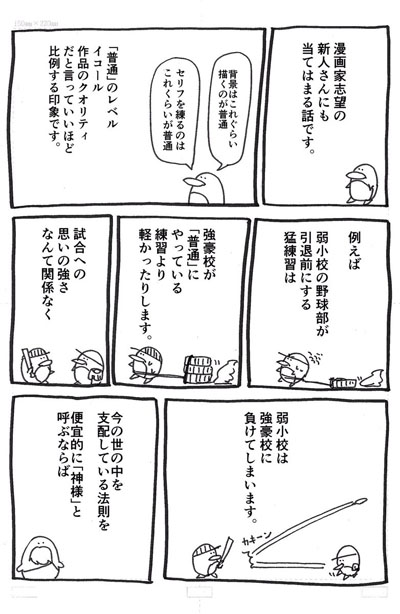 150mm × 220mm
漫画家志望の
新人さんにも
当てはまる話です。
背景はこれぐらい
描くのが普通
セリフを練るのは
これくらいが普通
「普通」のレベル
イコール
作品のクオリティ
だと言っていいほど
比例する印象です。
例えば
弱小校の野球部が
引退前にする
猛練習は
強豪校が
「普通」に
やっている
練習より
軽かったりします。
試合への
思いの強さ
なんて関係なく
弱小校は
強豪校に
負けてしまいます。
カキーン
今の世の中を
支配している法則を
便宜的に「神様」と
呼ぶならば